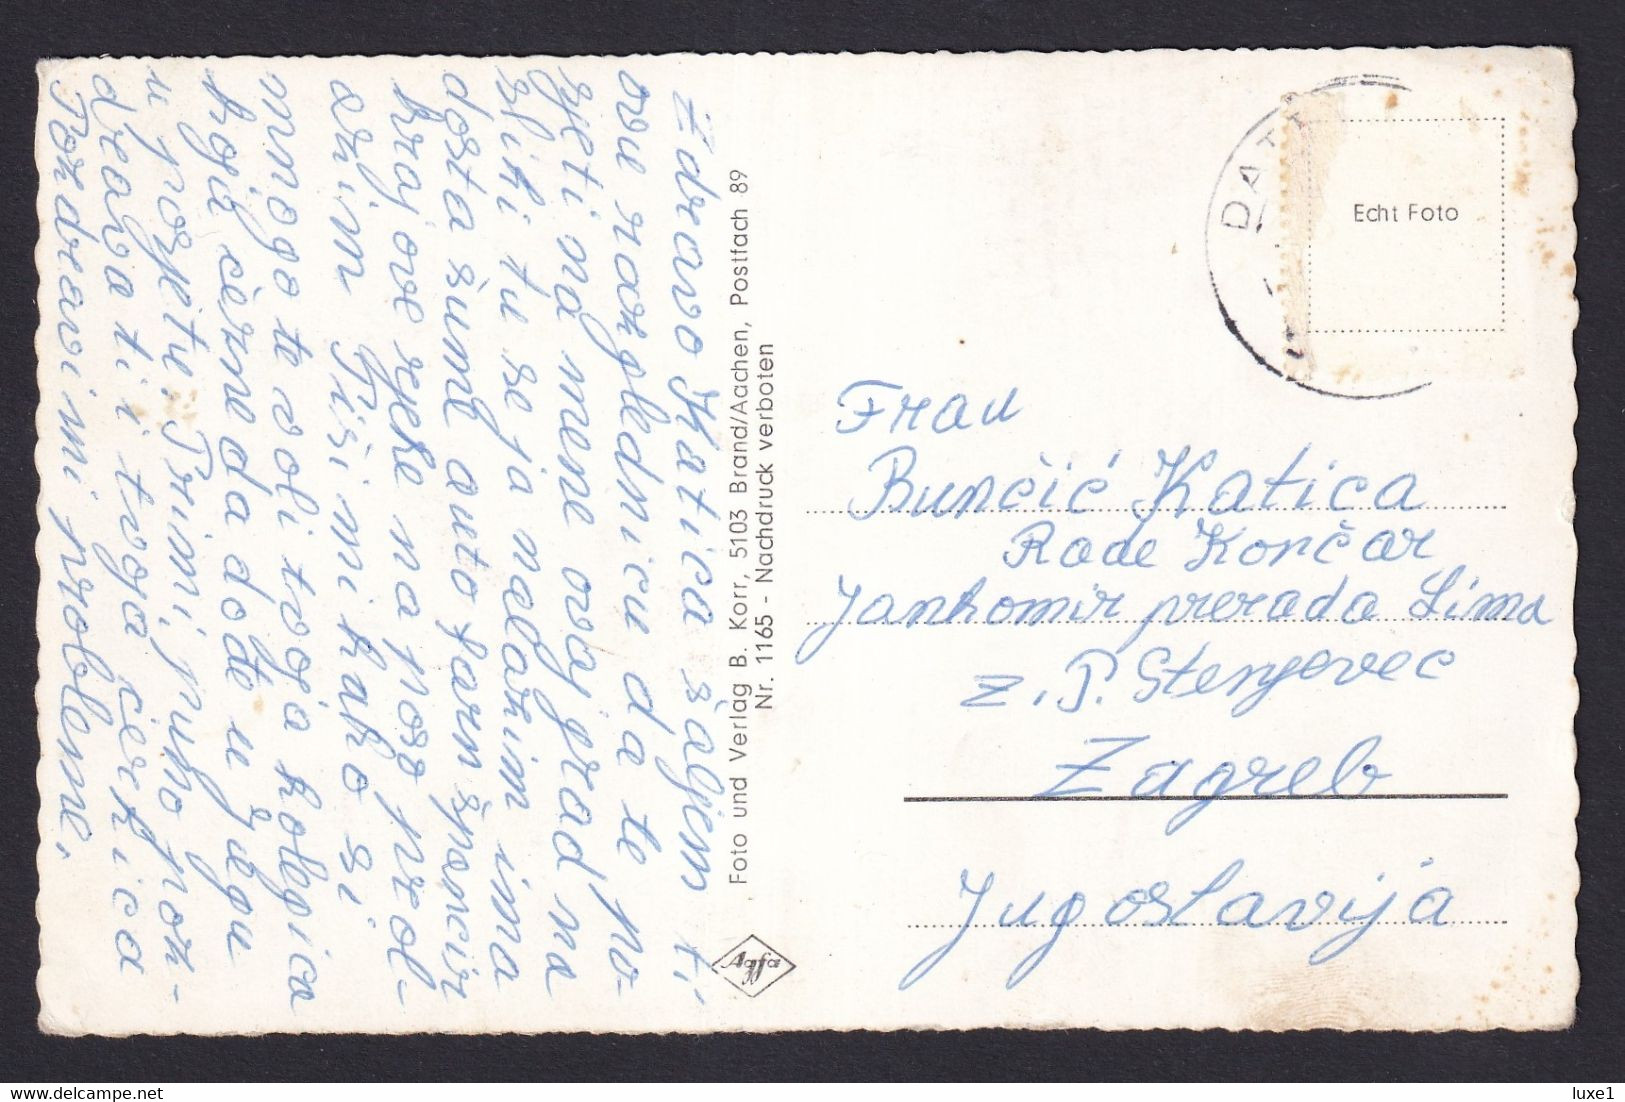 Zdravo Katica šaljem ti
ovu razglednicu da te po-
sjeti na mene ovaj grad na
sliki tu se ja nalazim ima
dosta šume auto parn
krajove rijeke na
Piši mi kako si
mnogo te voli tvoja kolegica
kogid
u posjetu. Primi puno poz-
drava ti i tvoja čerkica
Pozdravi mi probleme.
Foto und Verlag B. Korr, 5103 Brand/Aachen, Postfach 89
Nr. 1165 - Nachdruck verboten
Agfa
Echt Foto
Frau
Bunčić Katica
Rade Končar
Jankomir prerada Lima
z. P. Stenjevec
Zagreb
Jugoslavija
luxe1